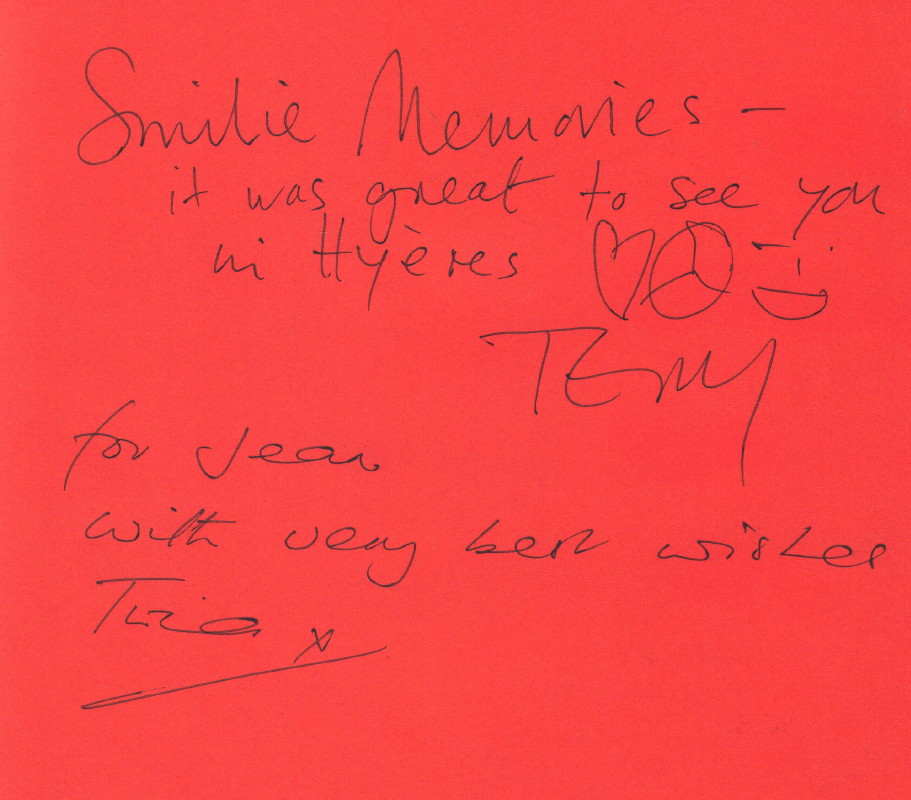 Smilie Memories –
it was great to see you
in Hyères
TERRY
for Jean
with very best wishes
x